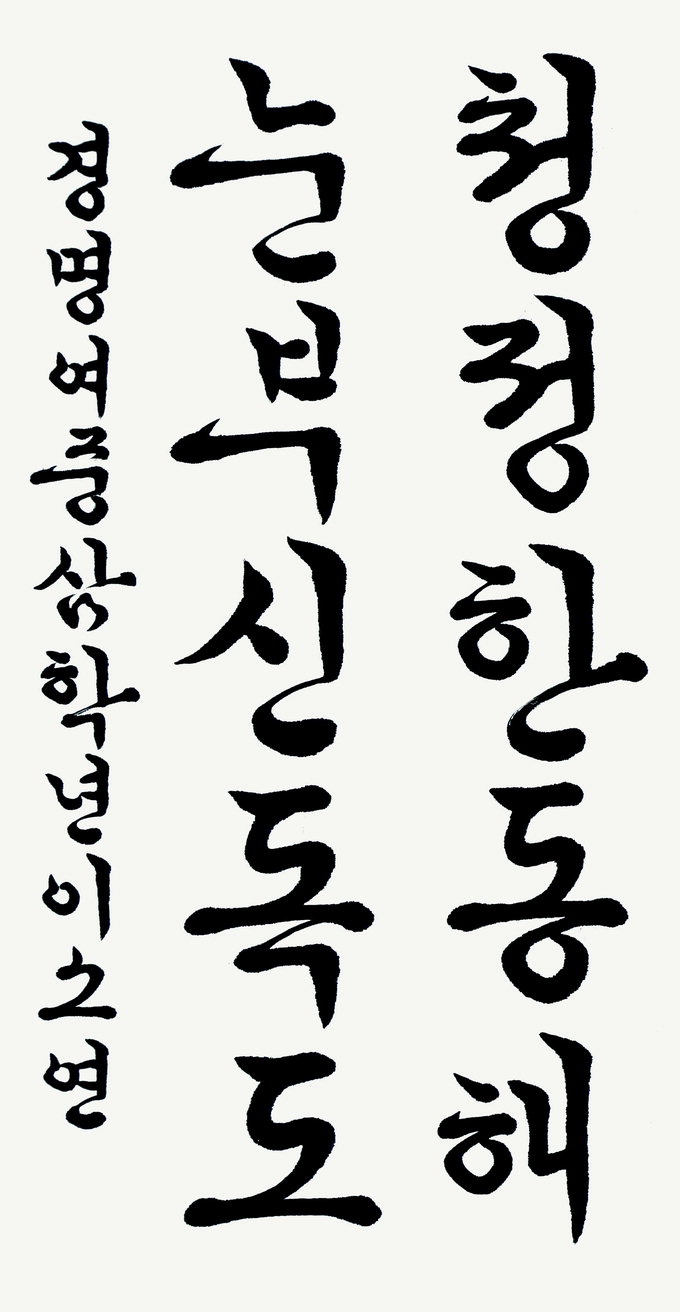 청정한동해
눈부신독도
정명여중삼학년이소연